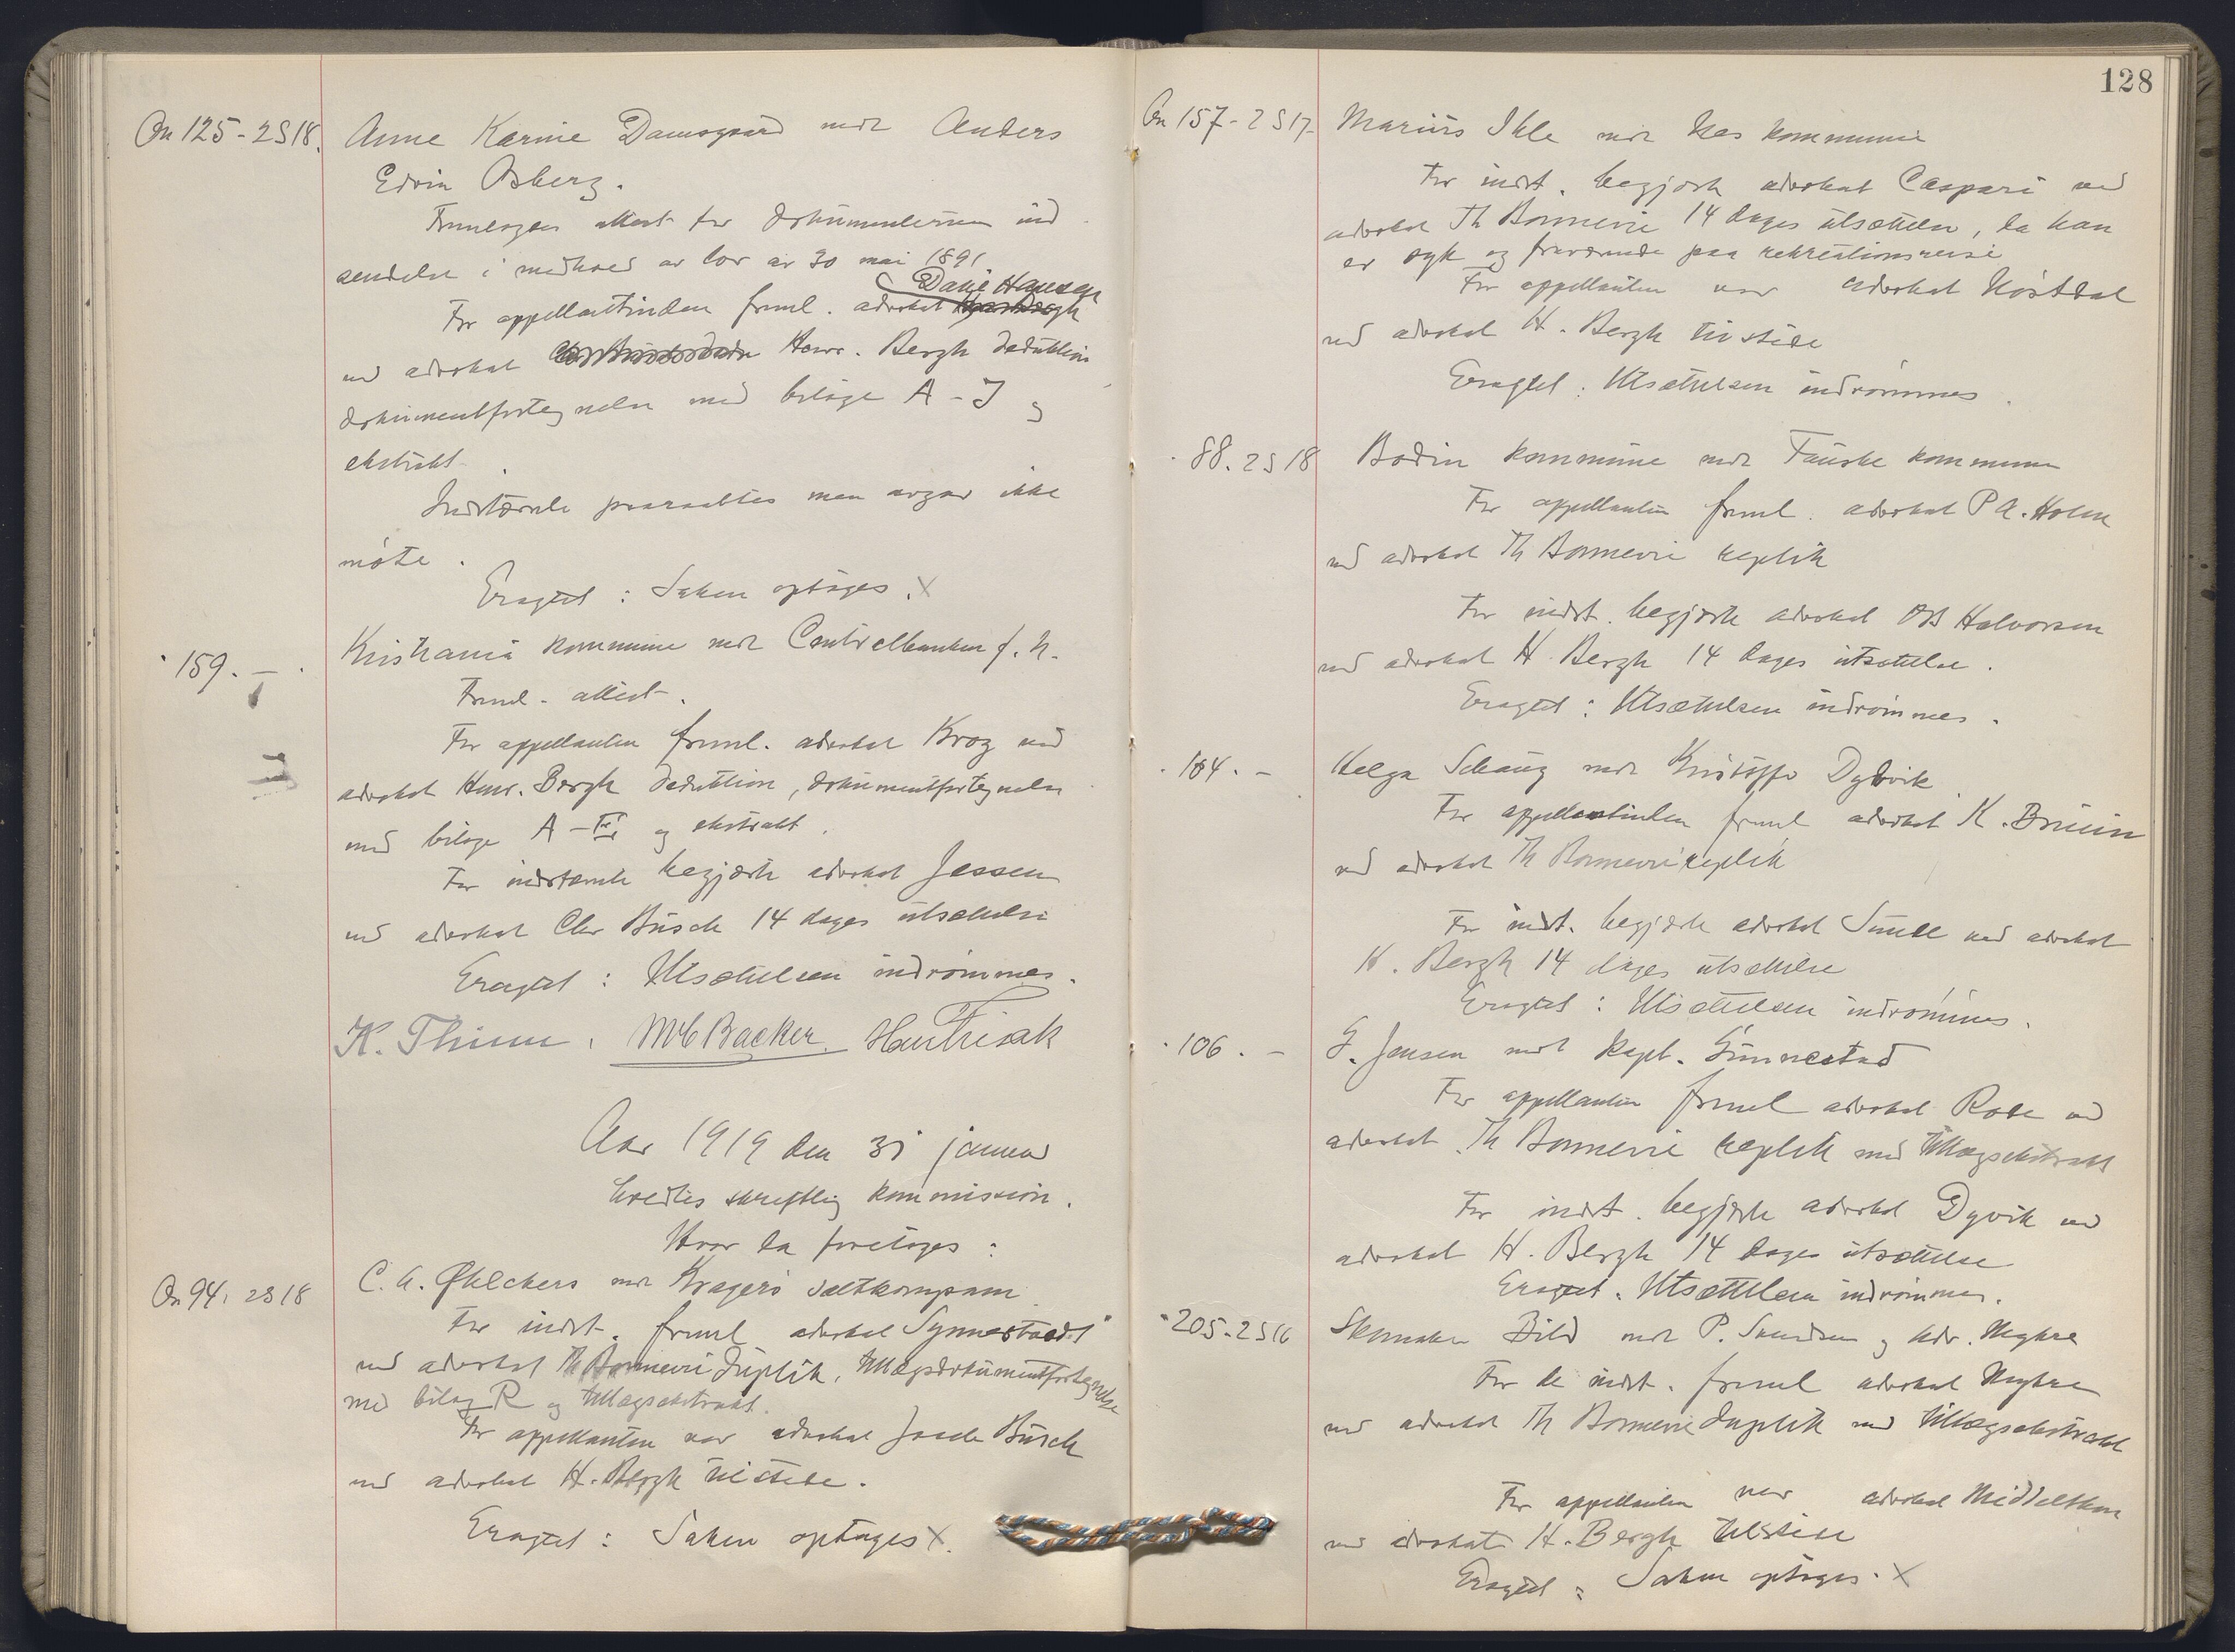 On 125 - 2S18. Anne Karine Damsgaard mot Anders
Edvin Åsberg.
Fremlagdes attest for dokumenternes ind
sendelse i medhold av lov av 30 mai 1891
Davie Hansen
For appellantinden freml. advokat
ved advokat Henr. Bergh deduktion
dokumentfortegnelse med bilage A - J og
ekstrakt.
Indstævnte paaraabtes men avgav ikke
møte.
Eragtet : Saken optages. X
" 159. — Kristiania kommune mot Centralbanken f. N.
Freml. attest.
For appellanten freml. advokat Krog ved
advokat Henr. Bergh deduktion, dokumentfortegnelse
med bilage A - og ekstrakt.
For indstævnte begjærte advokat Jessen
ved advokat Chr Busch 14 dages utsættelse
Eragtet : Utsættelsen indrømmes.
K. Thinn. M C Backer.
Aar 1919 den 31 januar
holdtes skriftlig kommission.
Hvor da foretoges :
On 94. 2S18 C. A. Øhlckers mot Kragerø saltkompani
For indst. freml advokat Synnestvedt
ved advokat Th Bonnevie duplik, tillægsdokumentfortegnelse
med bilag R og tillægsekstrakt.
For appellanten var advokat Busch
ved advokat H. Bergh tilstede.
Eragtet : Saken optages X.
128
On 157 - 2S17 - Marius Ihle mot Nes kommune
For indst. begjærte advokat Caspari ved
advokat Th Bonnevie 14 dages utsættelse, da han
er syk og fraværende paa rekreationsreise
For appellanten var advokat Høstdal
ved advokat H. Bergh tilstede
Eragtet : Utsættelsen indrømmes.
" 88. 2S18 Bodin kommune mot Fauske kommune
For appellanten freml. advokat P A. Holm
ved advokat Th Bonnevie replik
For indst. begjærte advokat OB Halvorsen
ved advokat H. Bergh 14 dages utsættelse.
Eragtet : Utsættelsen indrømmes.
" 104. - Helga Schaug mot Kristoffer Dybvik
For appellantinden freml advokat K. Bruun
ved advokat Th Bonnevie replik
For indst. begjærte advokat Sunde ved advokat
H. Bergh 14 dages utsættelse
Eragtet : Utsættelsen indrømmes.
" 106. - G. Jensen mot kapt. Gunnestad
For appellanten freml advokat Rode ved
advokat Th Bonnevie replik med tillægsekstrakt
For indst. begjærte advokat Dyvik ved
advokat H. Bergh 14 dages utsættelse
Eragtet. Utsættelsen indrømmes.
" 205 - 2S16 Skomaker Bild mot P. Svendsen og adv. Myhre
For de indst. freml advokat Myhre
ved advokat Th Bonnevie duplik med tillægsekstrakt
For appellanten var advokat Middelthon
ved advokat H. Bergh tilstede
Eragtet : Saken optages. X